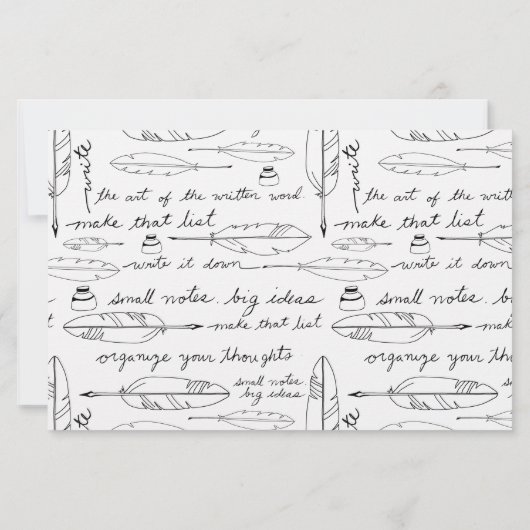 write
the art of the written word.
the art of the written
make that list
make that list
write it down
write it down
small notes. big ideas
small notes.
make that list
make
organize your thoughts
organize your tho
small notes.
big ideas
write
te
te